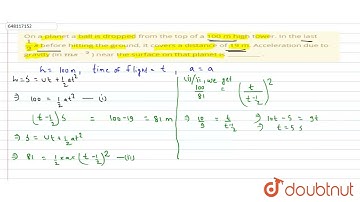 648117152
On a planet a ball is dropped from the top of a 100 m high tower. In the last
1/2 s before hitting the ground, it covers a distance of 19 m. Acceleration due to
gravity (in ms⁻²) near the surface on that planet is
h = 100m, time of flight = t, a = a
h = S = ut + 1/2 at²
⇒ 100 = 1/2 at² — (i)
(t - 1/2) s = 100 - 19 = 81 m
⇒ S = ut + 1/2 at²
⇒ 81 = 1/2 × a × (t - 1/2)² — (ii)
(i)/(ii), we get
100/81 = (t/(t - 1/2))²
⇒ 10/9 = t/(t - 1/2) ⇒ 10t - 5 = 9t
⇒ t = 5 s
doubtnut